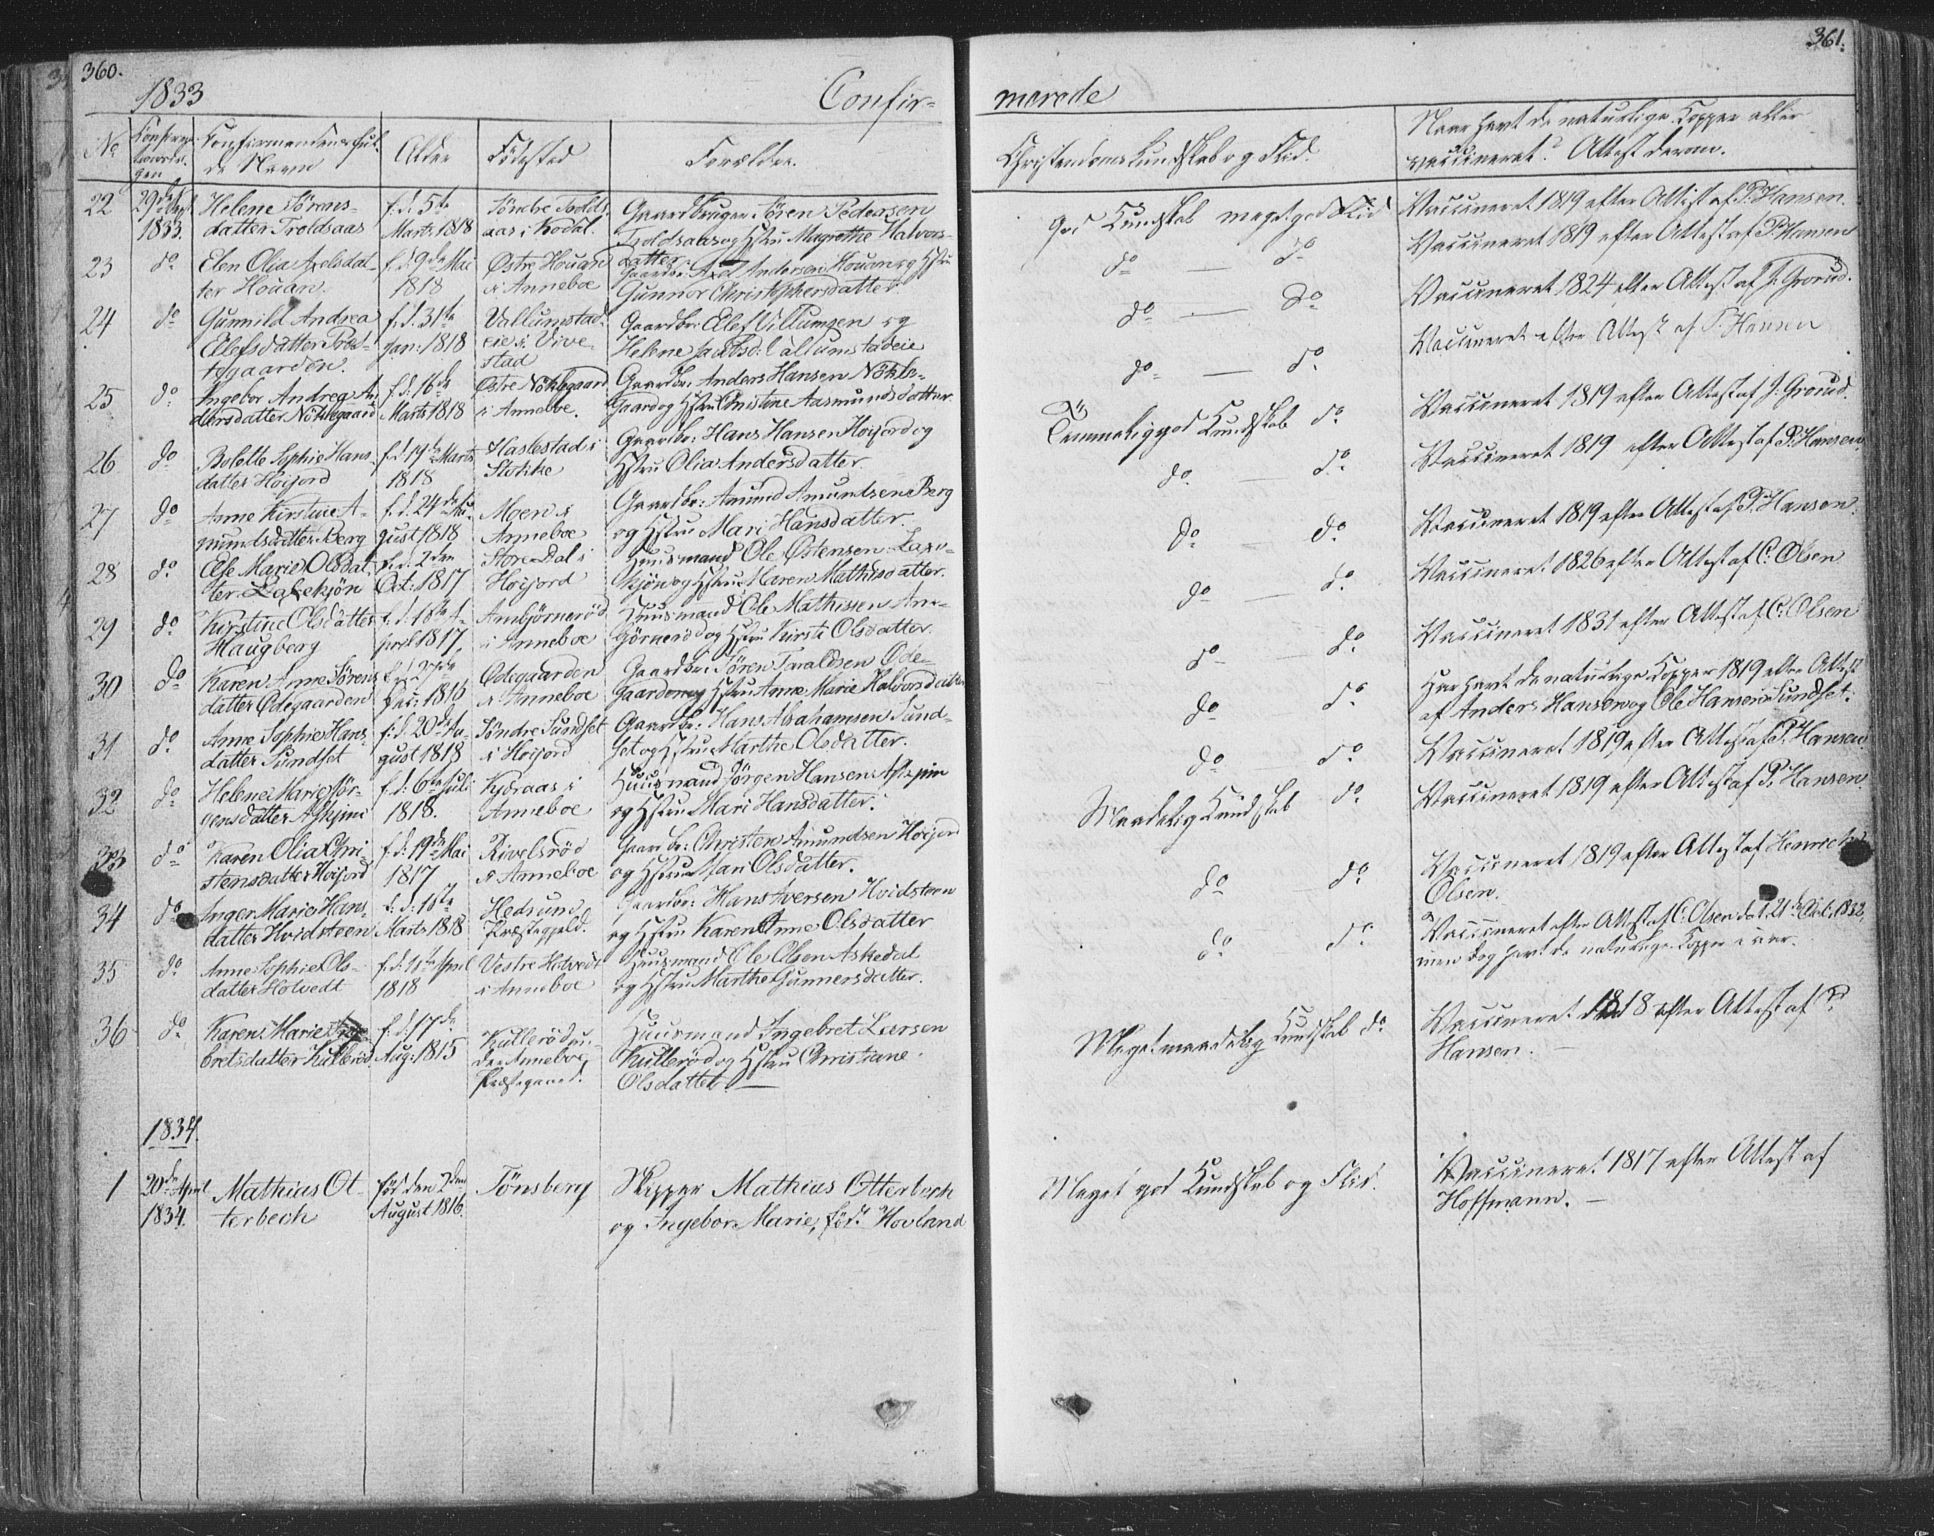 360.
1833
Confir-
No
Confirmandens ful-
de Navn
Alder
Fødested
Forældre.
22 29de Sept. 1833. Helene Sørens-
datter Troldsaas
f. d. 5te
Marts 1818
Søndre Trolds-
aas i Kodal.
Gaardbruger Søren Pedersen
Troldsaas og Hstru Magrethe Halvors-
datter.
23 do Elen Olia Axelsdat-
ter Houan.
f. d. 9de Mai
1818
Østre Houan
i Anneboe
Gaardbr: Axel Andersen Houan og Hstru
Gunnor Christophersdatter.
24 do Gunnild Andrea
Ellefsdatter Præ-
stegaarden.
f. d. 31te
Jan: 1818
Vallumstad-
eie i Vive-
stad
Gaardbr: Ellef Villumsen og
Helene Jacobsd: Vallumstadeie
25 do Ingebor Andrea An-
dersdatter Nöklegaard
f. d. 16de
Marts 1818
Østre Nöklegaard
i Anneboe.
Gaardbr: Anders Hansen Nökle-
gaard og Hstru Christine Aasmundsdatter.
26 do Bolette Sophie Hans-
datter Høijord
f. d. 19de Marts
1818
Haslestad i
Stokke
Gaardbr: Hans Hansen Høijord og
Hstru Olia Andersdatter
27 do Anne Kirstine A-
mundsdatter Berg
f. d. 24de Au-
gust 1818
Moen i
Anneboe
Gaardbr: Amund Amundsen Berg
og Hstru Mari Hansdatter.
28 do Else Marie Olsdat-
ter Laxekjön
f. d. 2den
Oct. 1817
Store Dal i
Høijord
Huusmand Ole Østensen Laxe-
kjön og Hstru Maren Mathisdatter.
29 do Kirstine Olsdatter
Haugberg
f. d. 16de A-
pril 1817
Arnbjörnerød
i Anneboe
Huusmand Ole Mathissen Arn-
bjørnerød og Hstru Kirsti Olsdatter.
30 do Karen Anne Sørens-
datter Ødegaarden
f. d. 27de
Dec: 1816
Ødegaarden
i Anneboe
Gaardbr: Søren Taraldsen Øde-
gaarden og Hstru Anne Marie Halvorsdatter
31 do Anne Sophie Hans-
datter Sundset
f. d. 20de Au-
gust 1818
Søndre Sundset
i Høijord
Gaardbr: Hans Abrahamsen Sund-
set og Hstru Marthe Olsdatter.
32 do Helene Marie Jör-
gensdatter Askjim
f. d. 6te Juli
1818.
Kjøraas i
Anneboe
Huusmand Jörgen Hansen Askjim
og Hstru Mari Hansdatter.
33 do Karen Olia Chri-
stensdatter Høijord
f. d. 19de Mai
1817
Rivelsröd
i Anneboe
Gaardbr: Christen Amundsen Høijord
og Hstru Mari Olsdatter.
34 do Inger Marie Hans-
datter Hvidsteen
Marts 1818
Hedrum
Præstegjeld.
Gaardbr: Hans Iversen Hvidsteen
og Hstru Karen Anne Olsdatter
35 do Anne Sophie Ols-
datter Hotvedt
April
1818
Vestre Hotvedt
i Anneboe
Huusmand Ole Olsen Askedal
og Hstru Marthe Gunnersdatter.
36 do Karen Marie Inge-
bretsdatter Kullerød
f. d. 17de
Aug. 1815
Kullerød un-
der Anneboe
Præstegaard.
Huusmand Ingebret Larsen
Kullerød og Hstru Christiane
Olsdatter.
1834.
1 20de April
1834.
Mathias Ot-
terbech
født den 2den
August 1816.
Tønsberg
Skipper Mathias Otterbech
og Ingebor Marie, født Hovland
361.
merede
Christendoms Kundskab og Flid.
Naar havt de naturlige Kopper eller
vaccineret? Attest derom.
god Kundskab meget god Flid
Vaccineret 1819 efter Attest af P. Hansen.
do — do
Vaccineret 1819 efter Attest af P. Hansen
do — do
Vaccineret 1824 efter Attest af J. Grorud.
do — do
Vaccineret efter Attest af P. Hansen
Temmelig god Kundskab do
Vaccineret 1819 efter Attest af J. Grorud.
do — do
Vaccineret 1819 efter Attest af P. Hansen
do — do
Vaccineret 1819 efter Attest af P. Hansen.
do — do
Vaccineret 1826 efter Attest af C. Olsen
do — do
Vaccineret 1831 efter Attest af C. Olsen
do do
Har havt de naturlige Kopper 1819 efter Attest
af Anders Hansen og Ole Hansen Sundset.
do do
Vaccineret 1819 efter Attest af P. Hansen
Maadelig Kundskab do
Vaccineret 1819 efter Attest af P. Hansen
do do
Vaccineret 1819 efter Attest af Henrich
Olsen.
do do
Vaccineret efter Attest af C. Olsen dat. 21de Oct. 1832,
men dog havt de naturlige Kopper i aar.
Meget maadelig Kundskab do
Vaccineret 1818 efter Attest af P.
Hansen. —
Meget god Kundskab og Flid.
Vaccineret 1817 efter Attest af
Hoffmann. —